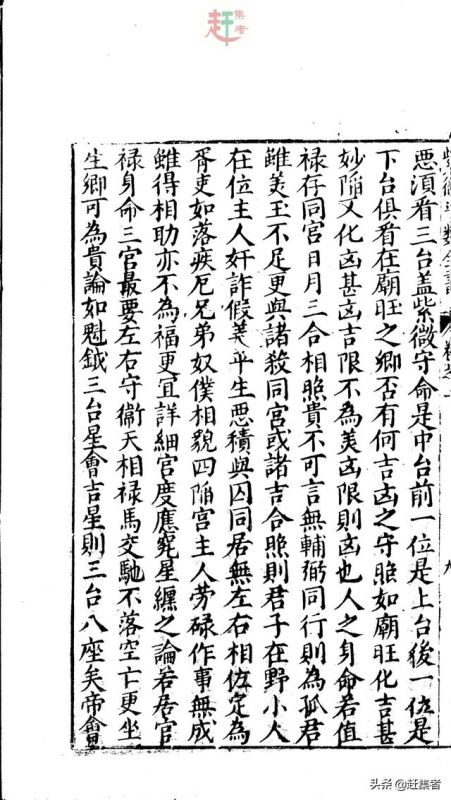 赶集者
惡須看三台盖紫微守命是中台前一位是上台後一位是
下台俱看在廟旺之鄉否有何吉凶之守照如廟旺化吉甚
妙陥又化凶甚凶吉限不為美凶限則凶也人之身命若值
禄存同宮日月三合相照貴不可言無輔弼同行則為孤君
雖美玉不足更與諸殺同宮或諸吉合照則君子在野小人
在位主人奸詐假善平生惡積與囚同居無左右相佐定為
胥吏如落疾厄兄弟奴僕相貌四陥宮主人勞碌作事無成
雖得相助亦不為福更宜詳細宮度應究星纏之論若居官
禄身命三宮最要左右守衛天相禄馬交馳不落空亡更坐
生鄉可為貴論如魁鉞三台星會吉星則三台八座矣帝會
头条 @赶集者